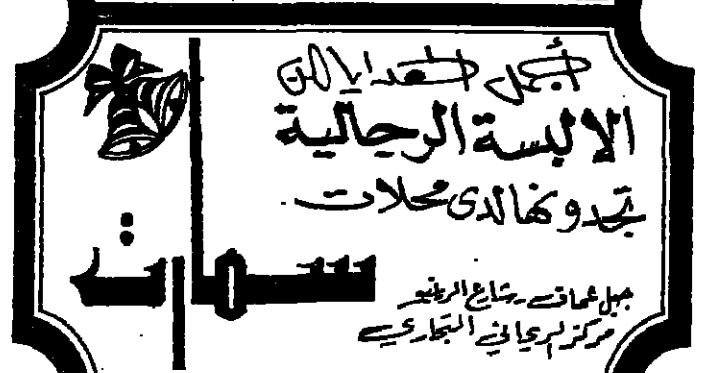 أجمل الهدايا من
الالبسة الرجالية
تجدونها لدى محلات
سمارت
جبل عمان - شارع الرينبو
مركز الريحاني التجاري